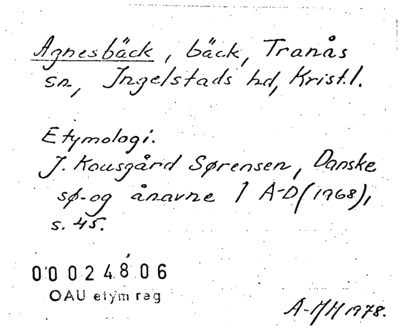 Agnesbäck, bäck, Tranås
sn, Ingelstads hd, Krist.l.
Etymologi.
J. Kousgård Sørensen, Danske
sø- og ånavne 1 A-D (1968),
s. 45.
00024806
OAU etym reg
A-MH 1978.